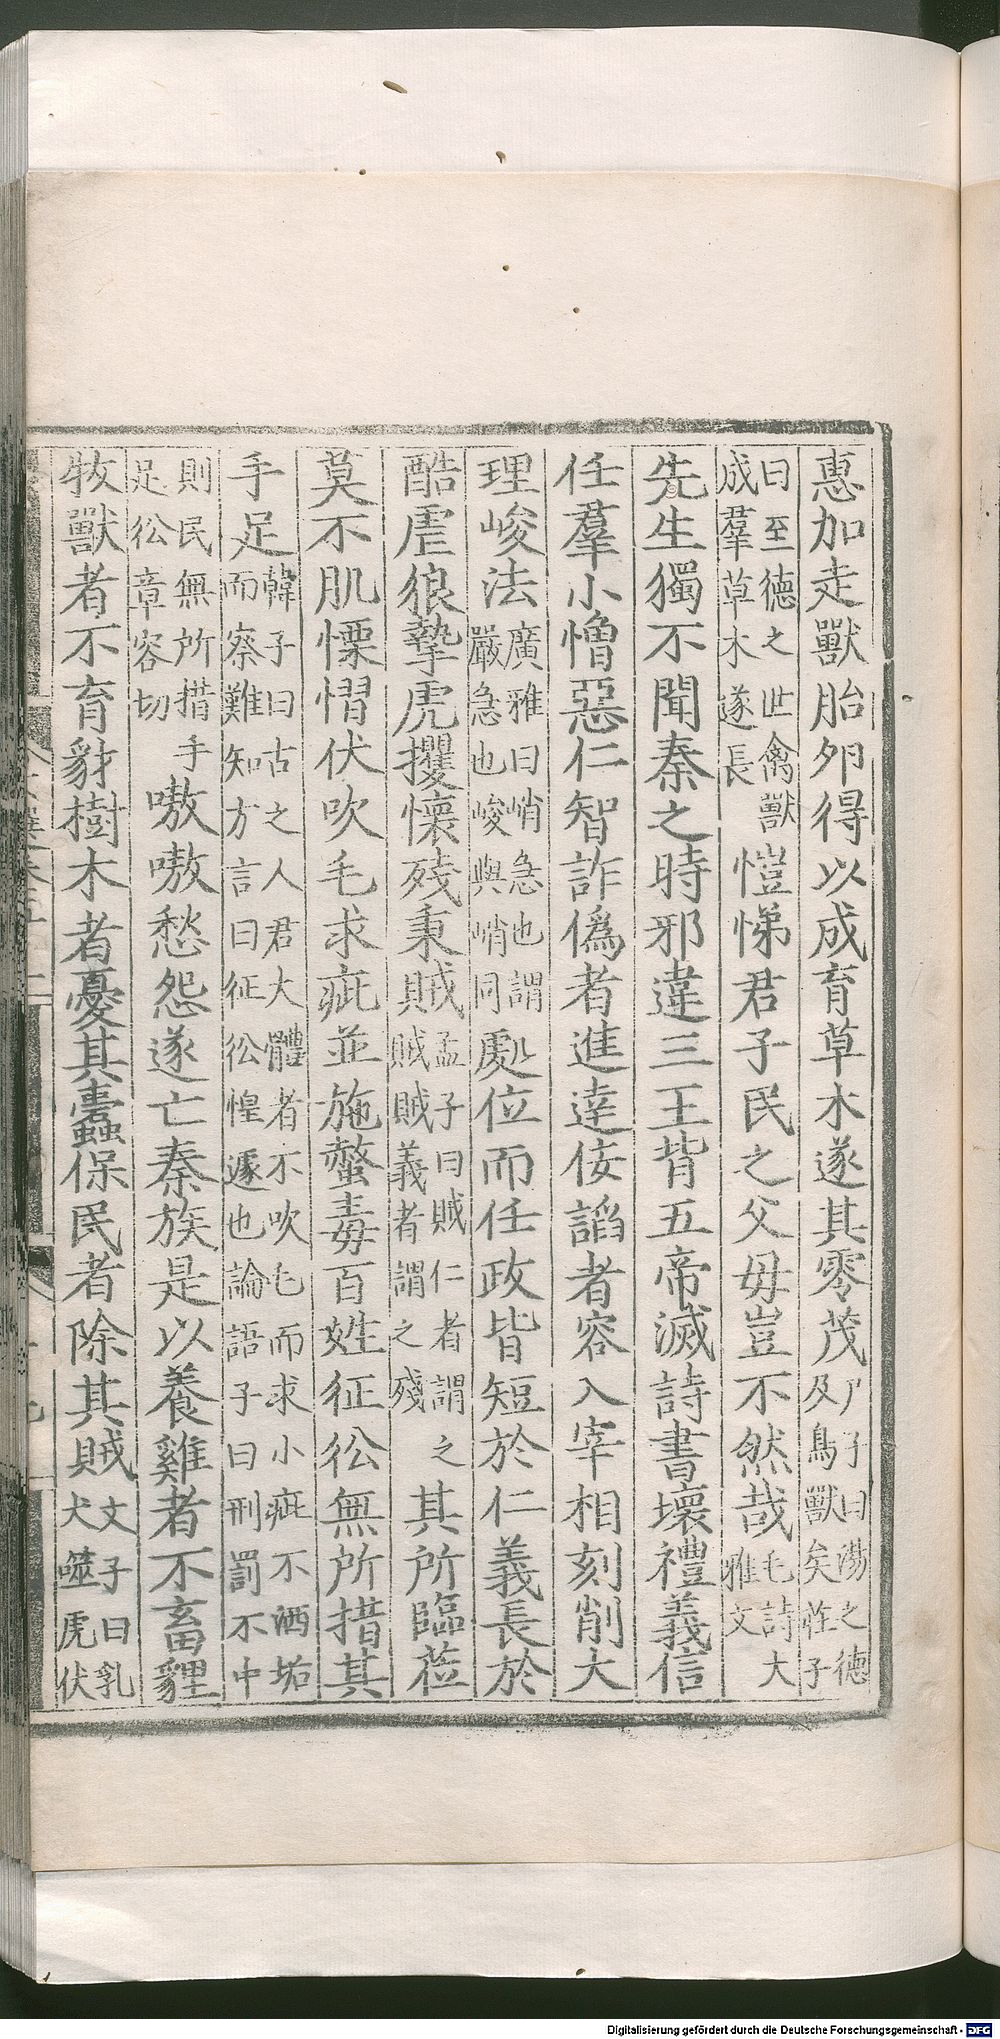 惠加走獸胎夘得以成育草木遂其零茂尸子曰湯之德及鳥獸矣莊子
曰至德之世禽獸成羣草木遂長愷悌君子民之父毋豈不然哉毛詩大雅文
先生獨不聞秦之時邪違三王背五帝滅詩書壞禮義信
任羣小憎惡仁智詐偽者進達佞謟者容入宰相刻削大
理峻法廣雅曰峭急也謂嚴急也峻與峭同處位而任政皆短於仁義長於
酷虐狼摯虎攫懷殘秉賊孟子曰賊仁者謂之賊賊義者謂之殘其所臨莅
莫不肌慄慴伏吹毛求疵並施螫毒百姓征彸無所措其
手足韓子曰古之人君大體者不吹毛而求小疵不洒垢而察難知方言曰征彸惶遽也論語子曰刑罰不中
則民無所措手足彸章容切嗷嗷愁怨遂亡秦族是以養雞者不畜貍
牧獸者不育豺樹木者憂其蠹保民者除其賊文子曰乳犬噬虎伏
Digitalisierung gefördert durch die Deutsche Forschungsgemeinschaft - DFG